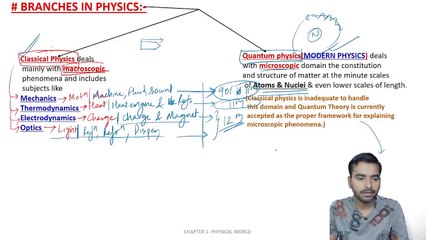 # BRANCHES IN PHYSICS:-
Classical Physics deals
mainly with macroscopic
phenomena and includes
subjects like
Mechanics → Motn / Machine, Fluid, Sound
Thermodynamics → Heat / Heat engine &
Electrodynamics → Charge / Charge & Magnet
Optics → Light / Refn, Dispen
11th
12th
N
Quantum physics (MODERN PHYSICS) deals
with microscopic domain the constitution
and structure of matter at the minute scales
of Atoms & Nuclei & even lower scales of length.
(Classical physics is inadequate to handle
this domain and Quantum Theory is currently
accepted as the proper framework for explaining
microscopic phenomena.)
CHAPTER 1- PHYSICAL WORLD